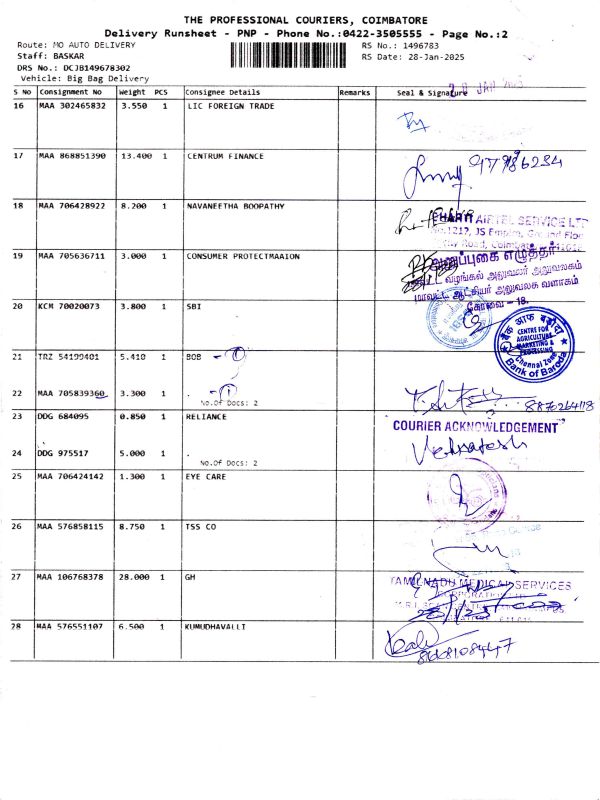 THE PROFESSIONAL COURIERS, COIMBATORE
Delivery Runsheet - PNP - Phone No.:0422-3505555 - Page No.:2
Route: MO AUTO DELIVERY RS No.: 1496783
Staff: BASKAR RS Date: 28-Jan-2025
DRS No.: DCJB149678302
Vehicle: Big Bag Delivery
S No Consignment No Weight PCS Consignee Details Remarks Seal & Signature
16 MAA 302465832 3.550 1 LIC FOREIGN TRADE
17 MAA 868851390 13.400 1 CENTRUM FINANCE
18 MAA 706428922 8.200 1 NAVANEETHA BOOPATHY
BHARTI AIRTEL SERVICE LTD
JS Empire, Ground Floor
Road, Coimbatore
19 MAA 705636711 3.000 1 CONSUMER PROTECTMAAION
அனுப்புகை எழுத்தர்
மாவட்ட வழங்கல் அலுவலர் அலுவலகம்
மாவட்ட ஆட்சியர் அலுவலக வளாகம்
கோவை - 18.
20 KCM 70020073 3.800 1 SBI
बैंक ऑफ बड़ौदा
CENTRE FOR
AGRICULTURE
MARKETING &
PROCESSING
Chennai Zone
Bank of Baroda
21 TRZ 54199401 5.410 1 BOB - 1
22 MAA 705839360 3.300 1 . - 1
No.Of Docs: 2
8876264118
23 DDG 684095 0.850 1 RELIANCE
COURIER ACKNOWLEDGEMENT
Venkatesh
24 DDG 975517 5.000 1 .
No.Of Docs: 2
25 MAA 706424142 1.300 1 EYE CARE
26 MAA 576858115 8.750 1 TSS CO
27 MAA 106768378 28.000 1 GH
TAMILNADU MEDICAL SERVICES
CORPORATION
28 MAA 576551107 6.500 1 KUMUDHAVALLI